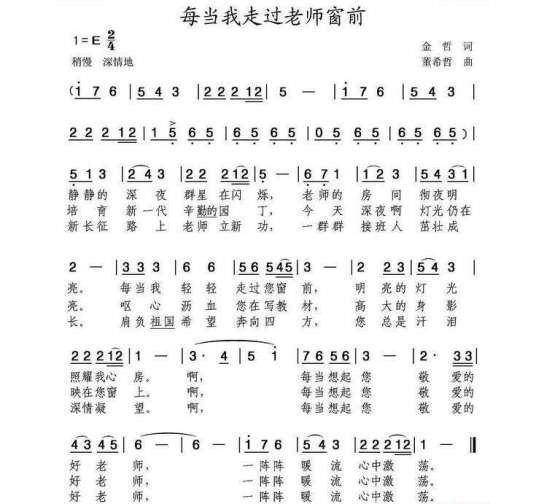 每当我走过老师窗前
1=E 2/4
金 哲 词
稍慢 深情地
董希哲 曲
(1 7 6 | 5 4 3 | 2 2 2 12 | 5 — | 1 7 6 | 5 4 3 |
2 2 2 12 | 1 5 6 5 | 6 5 6 5 | 0 5 6 5 | 6 5 6 5) |
5 1 3 | 2 4 3 | 2 2 | 2 12 | 5 — | 6 6 7 1 | 2 4 3 | 5 4 5 1 3 |
静静的 深夜 群星 在闪 烁, 老师的 房间 彻夜明
培 育 新一代 辛勤的园 丁, 今 天 深夜啊 灯光仍在
新长征 路上 老师 立新 功, 一群群 接班人 茁壮成
2 — | 3 3 3 | 6 6 | 5 2 5 45 | 3 — | 2 2 3 | 5 4 3 |
亮。 每当我 轻轻 走过您窗 前, 明亮的 灯光
亮。 呕心 沥血 您在写教 材, 高大的 身影
长。 肩负祖国 希望 奔向四 方, 您总是 汗泪
2 2 2 12 | 1 — | 3· 4 | 5 1 | 7 6 5 6 | 1 7 6 | 2· 3 3 |
照耀我心 房。 啊, 每当想起 您 敬爱的
映在您窗 上。 啊, 每当想起 您 敬爱的
深情凝 望。 啊, 每当想起 您 敬爱的
4 3 4 5 | 6 — | 6 — | 1 7 6 | 5 4 3 | 2 2 2 12 | 1 — ‖
好 老 师, 一阵阵 暖流 心中激 荡。
好 老 师, 一阵阵 暖流 心中激 荡。
好 老 师, 一阵阵 暖流 心中激 荡。